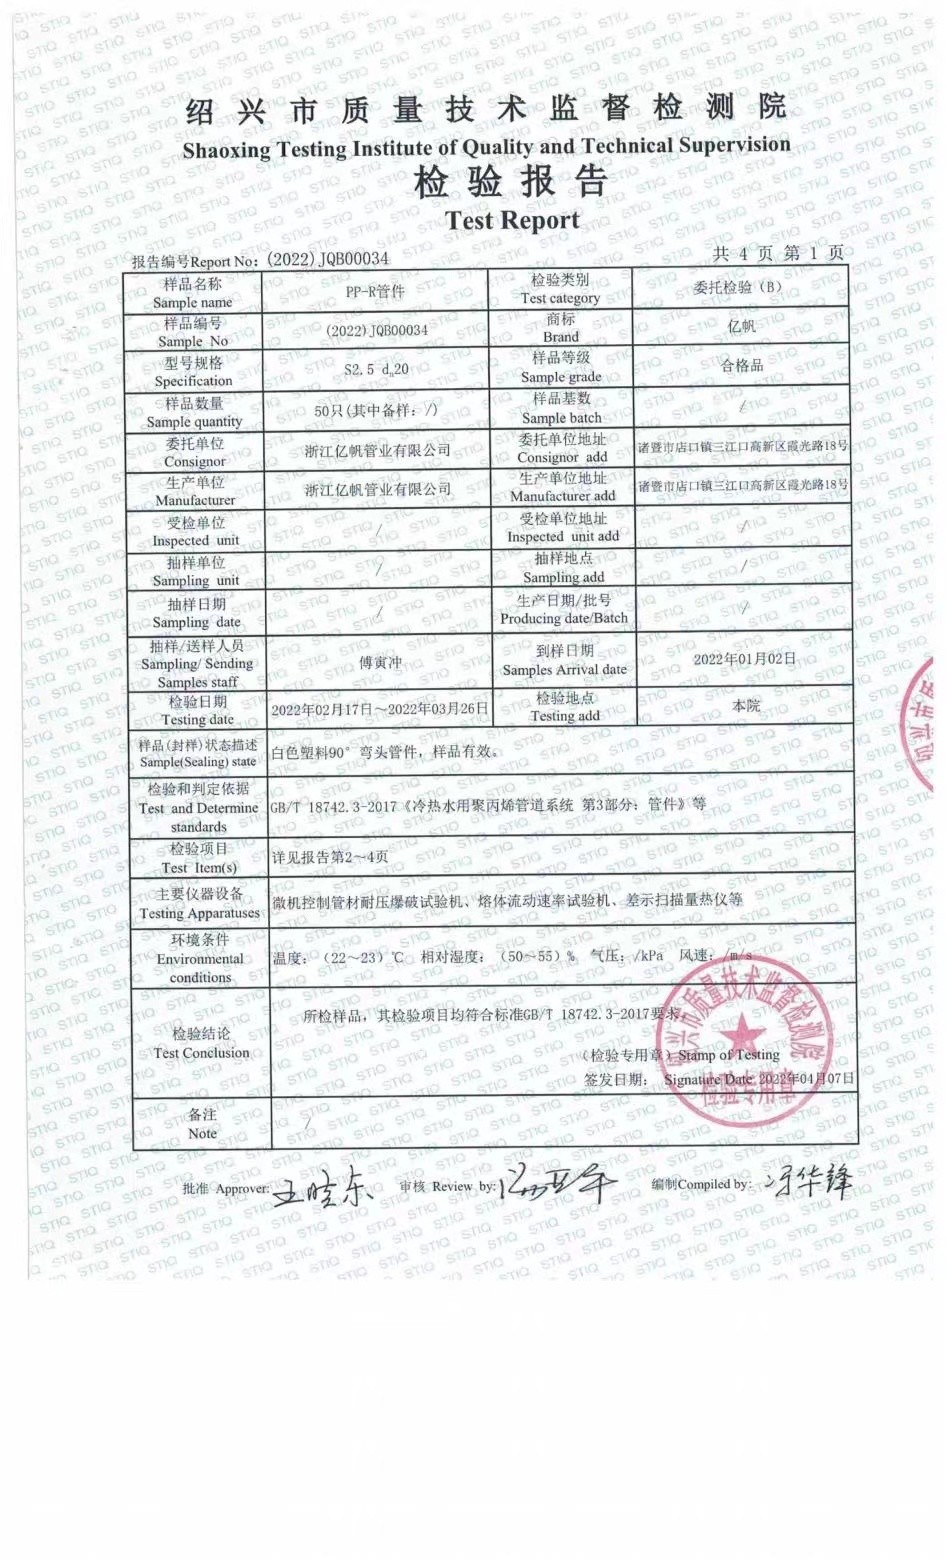 绍兴市质量技术监督检测院
Shaoxing Testing Institute of Quality and Technical Supervision
检验报告
Test Report
报告编号Report No: (2022)JQB00034
共 4 页 第 1 页
样品名称
Sample name
PP-R管件
检验类别
Test category
委托检验（B）
样品编号
Sample No
(2022)JQB00034
商标
Brand
亿帆
型号规格
Specification
S2.5 dn20
样品等级
Sample grade
合格品
样品数量
Sample quantity
50只(其中备样: /)
样品基数
Sample batch
/
委托单位
Consignor
浙江亿帆管业有限公司
委托单位地址
Consignor add
诸暨市店口镇三江口高新区霞光路18号
生产单位
Manufacturer
浙江亿帆管业有限公司
生产单位地址
Manufacturer add
诸暨市店口镇三江口高新区霞光路18号
受检单位
Inspected unit
/
受检单位地址
Inspected unit add
/
抽样单位
Sampling unit
/
抽样地点
Sampling add
/
抽样日期
Sampling date
/
生产日期/批号
Producing date/Batch
/
抽样/送样人员
Sampling/ Sending
Samples staff
傅寅冲
到样日期
Samples Arrival date
2022年01月02日
检验日期
Testing date
2022年02月17日～2022年03月26日
检验地点
Testing add
本院
样品(封样)状态描述
Sample(Sealing) state
白色塑料90° 弯头管件, 样品有效。
检验和判定依据
Test and Determine
standards
GB/T 18742.3-2017《冷热水用聚丙烯管道系统 第3部分: 管件》等
检验项目
Test Item(s)
详见报告第2～4页
主要仪器设备
Testing Apparatuses
微机控制管材耐压爆破试验机、熔体流动速率试验机、差示扫描量热仪等
环境条件
Environmental
conditions
温度:（22～23）℃ 相对湿度:（50～55）% 气压: /kPa 风速: /m/s
检验结论
Test Conclusion
所检样品, 其检验项目均符合标准GB/T 18742.3-2017要求。
（检验专用章）Stamp of Testing
签发日期: Signature Date 2022年04月07日
绍兴市质量技术监督检测院
检验专用章
备注
Note
/
批准 Approver: 王晓东
审核 Review by:
编制Compiled by: 冯华锋